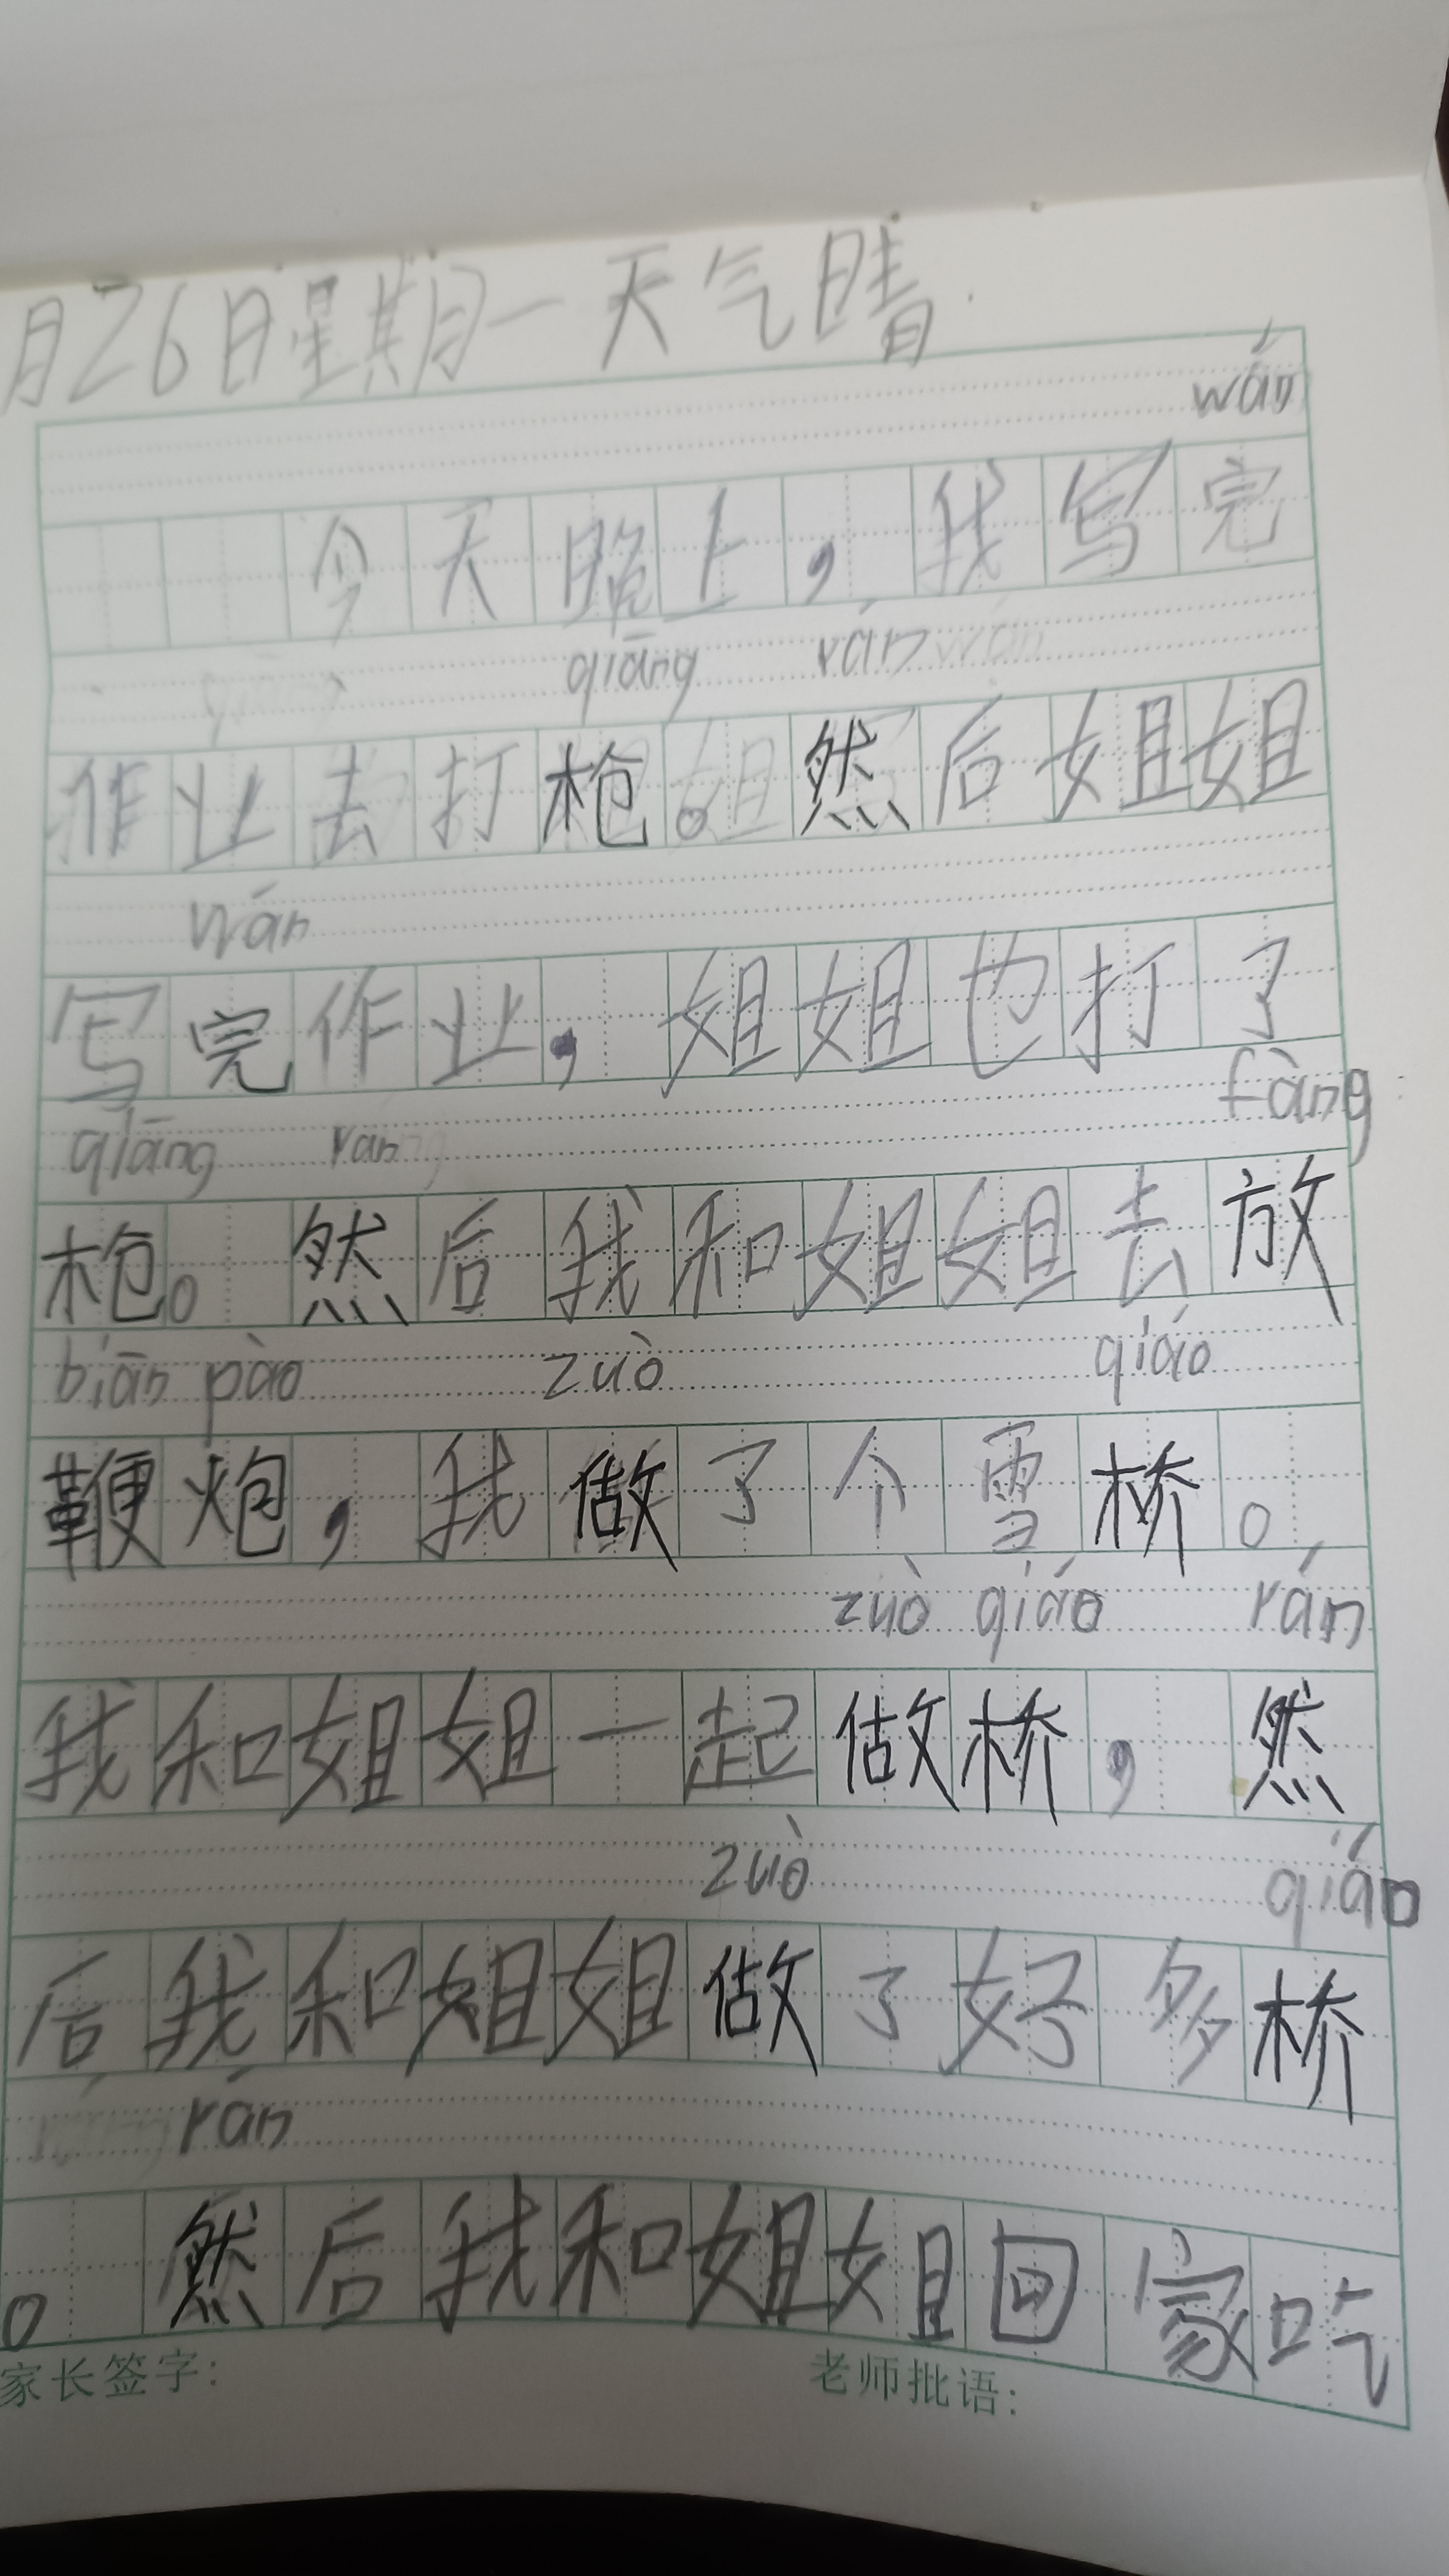 月26日星期一天气晴.
wán
今天晚上，我写完
qiāng rán wán
作业去打枪。然后姐姐
wán
写完作业，姐姐也打了
qiāng ran fàng
枪。然后我和姐姐去放
biān pào zuò qiáo
鞭炮，我做了个雪桥。
zuò qiáo rán
我和姐姐一起做桥，然
zuò qiáo
后我和姐姐做了好多桥
rán
。然后我和姐姐回家吃
家长签字: 老师批语: